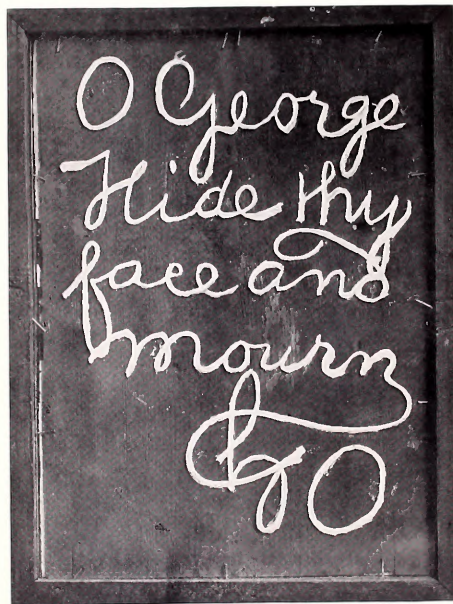 O George
Hide thy
face and
mourn